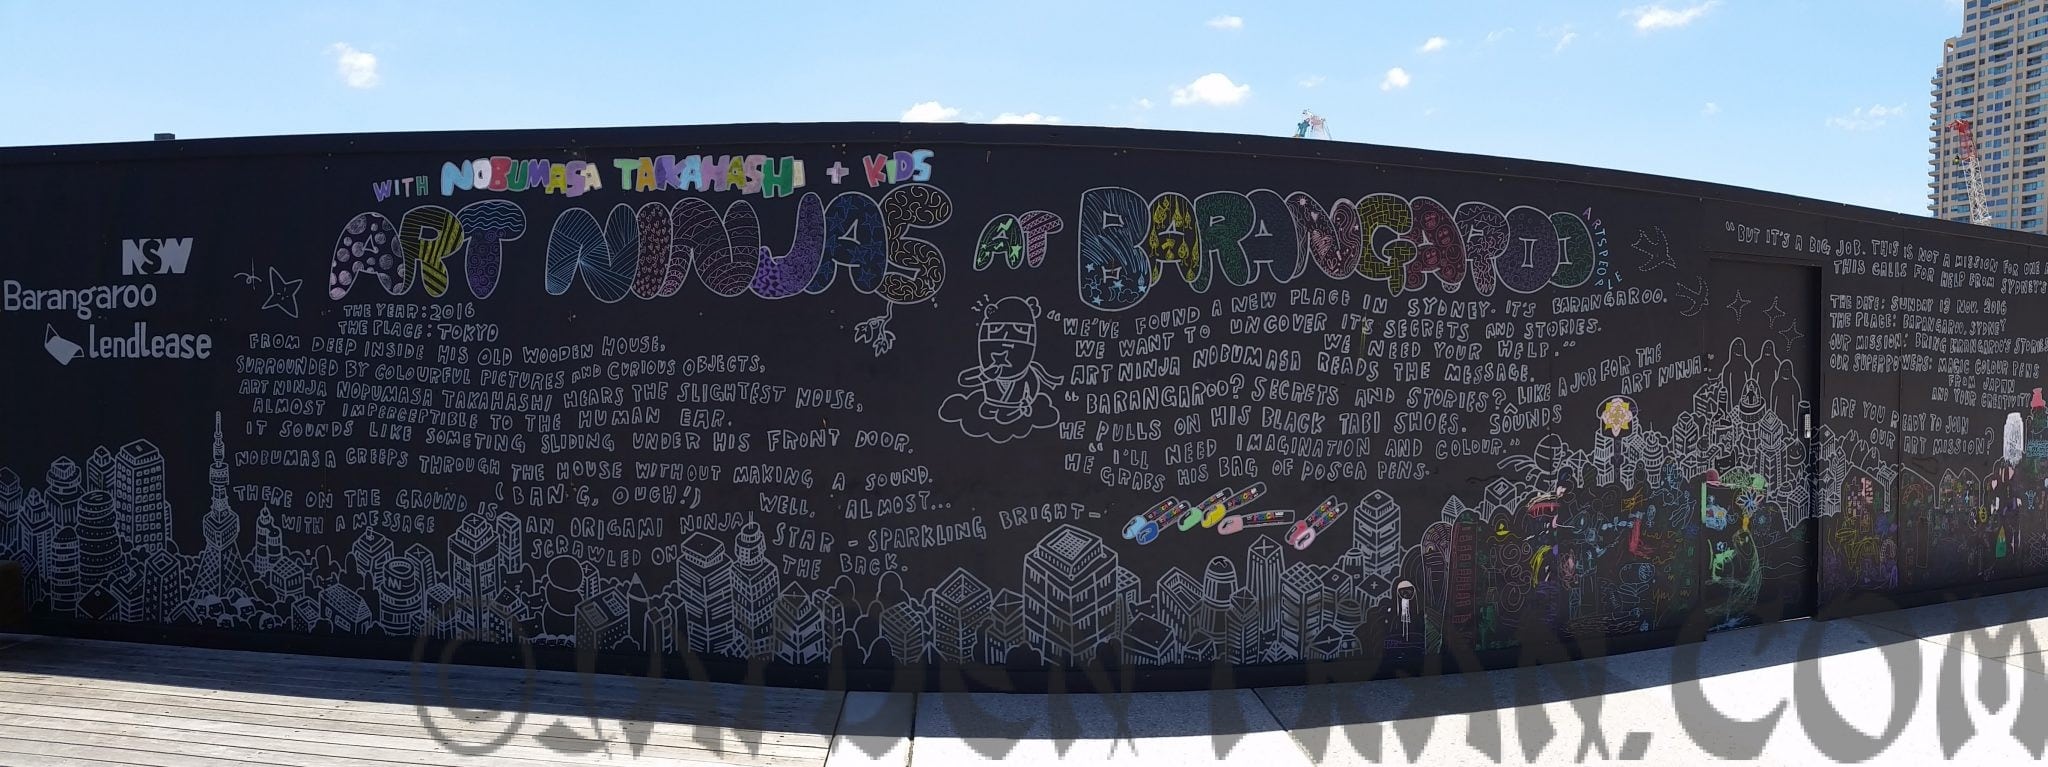 NSW
Barangaroo
lendlease
WITH NOBUMASA TAKAHASHI + KIDS
ART NINJAS AT BARANGAROO
ARTSPEOPLE
THE YEAR: 2016
THE PLACE: TOKYO
FROM DEEP INSIDE HIS OLD WOODEN HOUSE,
SURROUNDED BY COLOURFUL PICTURES AND CURIOUS OBJECTS,
ART NINJA NOPUMASA TAKAHASHI HEARS THE SLIGHTEST NOISE,
ALMOST IMPERCEPTIBLE TO THE HUMAN EAR.
IT SOUNDS LIKE SOMETING SLIDING UNDER HIS FRONT DOOR.
NOBUMASA CREEPS THROUGH THE HOUSE WITHOUT MAKING A SOUND.
(BANG, OUGH!) WELL, ALMOST...
THERE ON THE GROUND IS AN ORIGAMI NINJA STAR - SPARKLING BRIGHT-
WITH A MESSAGE SCRAWLED ON THE BACK.
"WE'VE FOUND A NEW PLACE IN SYDNEY. IT'S BARANGAROO.
WE WANT TO UNCOVER IT'S SECRETS AND STORIES.
WE NEED YOUR HELP."
ART NINJA NOBUMASA READS THE MESSAGE.
"BARANGAROO? SECRETS AND STORIES? SOUNDS LIKE A JOB FOR THE
ART NINJA."
HE PULLS ON HIS BLACK TABI SHOES.
"I'LL NEED IMAGINATION AND COLOUR."
HE GRABS HIS BAG OF POSCA PENS.
"BUT IT'S A BIG JOB. THIS IS NOT A MISSION FOR ONE
THIS CALLS FOR HELP FROM SYDNEY'S
THE DATE: SUNDAY 13 NOV. 2016
THE PLACE: BARANGAROO, SYDNEY
OUR MISSION: BRING BARANGAROO'S STORIES
OUR SUPERPOWERS: MAGIC COLOUR PENS
FROM JAPAN
AND YOUR CREATIVITY
ARE YOU READY TO JOIN
OUR ART MISSION?
©JAYDENTRAN.COM